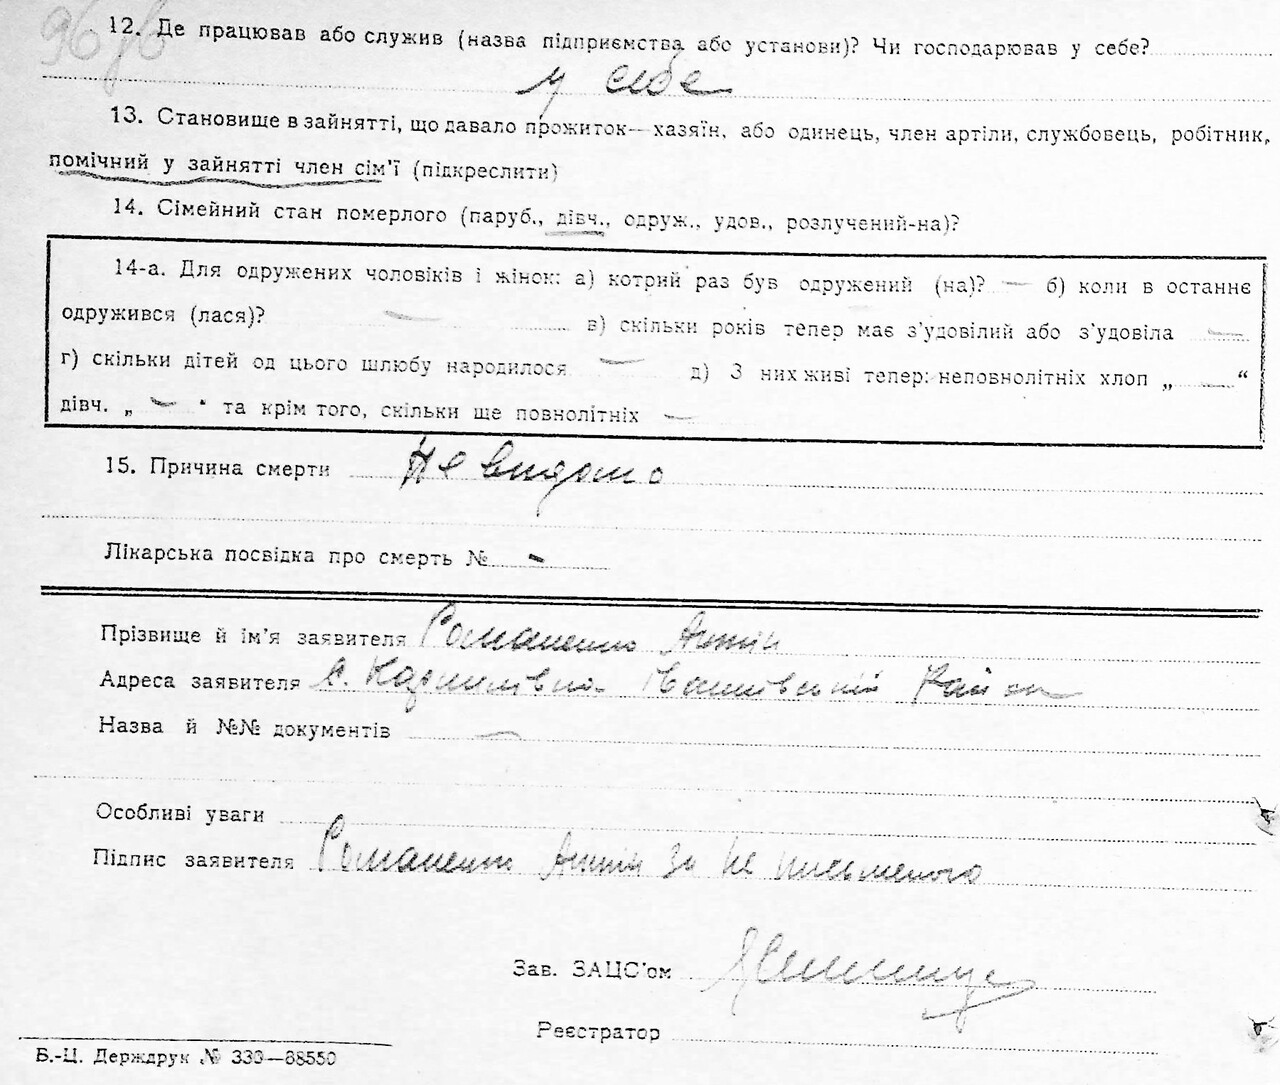 96
12. Де працював або служив (назва підприємства або установи)? Чи господарював у себе?
у себе
13. Становище в зайнятті, що давало прожиток—хазяїн, або одинець, член артіли, службовець, робітник,
помічний у зайнятті член сім'ї (підкреслити)
14. Сімейний стан померлого (паруб., дівч., одруж., удов., розлучений-на)?
14-а. Для одружених чоловіків і жінок: а) котрий раз був одружений (на)? — б) коли в останнє
одружився (лася)? — в) скільки років тепер має з'удовілий або з'удовіла —
г) скільки дітей од цього шлюбу народилося — д) З них живі тепер: неповнолітніх хлоп „ — “
дівч. „ — “ та крім того, скільки ще повнолітніх —
15. Причина смерти Не видомо
Лікарська посвідка про смерть № -
Прізвище й ім'я заявителя Романенко Антін
Адреса заявителя с. Карпилівка Район
Назва й №№ документів —
Особливі уваги
Підпис заявителя Романенко Антін За не письменого
Зав. ЗАЦС'ом
Реєстратор
Б.-Ц. Держдрук № 330—88550